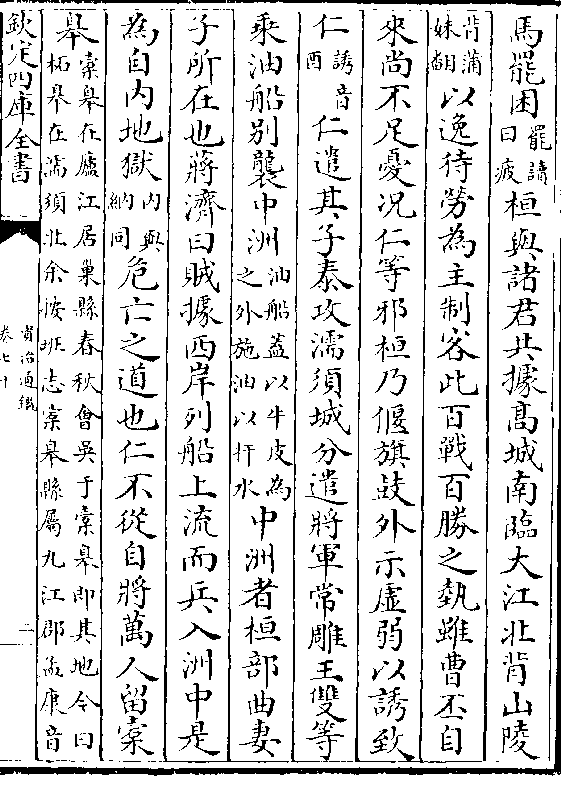 馬罷困罷讀曰疲桓與諸君共據髙城南臨大江北背山陵
背蒲妹翻以逸待勞為主制客此百戰百勝之埶雖曹丕自
來尚不足憂况仁等邪桓乃偃旗鼓外示虛弱以誘致
仁誘音酉仁遣其子泰攻濡須城分遣將軍常雕王雙等
乘油船别襲中洲油船蓋以牛皮為之外施油以扞水中洲者桓部曲妻
子所在也蔣濟曰賊據西岸列船上流而兵入洲中是
為自内地獄内與納同危亡之道也仁不從自將萬人留橐
臯橐臯在廬江居巢縣春秋會吳于橐臯即其地今曰柘臯在濡須北余按班志橐臯縣屬九江郡孟康音
欽定四庫全書
資治通鑑
卷七十
二